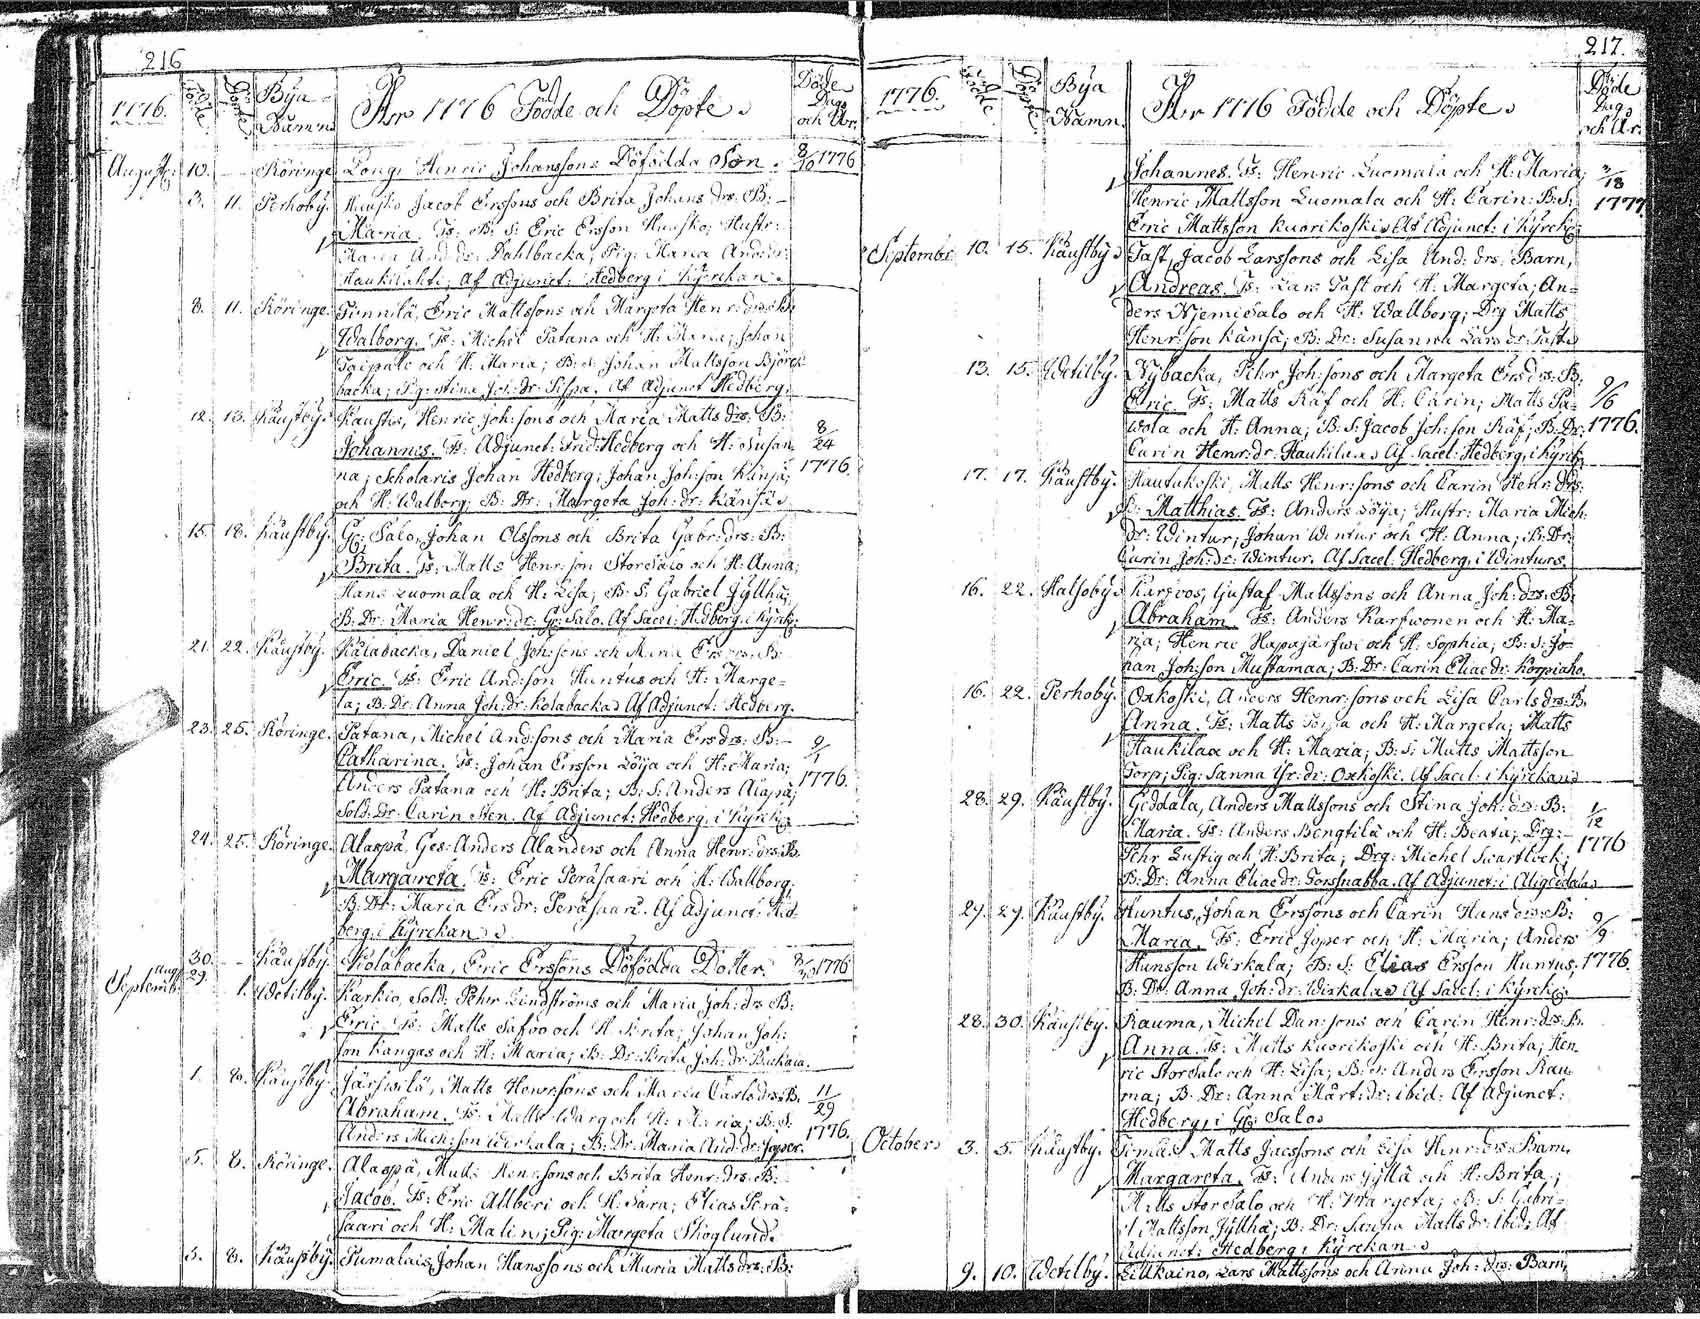 216
1776.
Födde.
Döpte.
Bÿa-
Namn
År 1776 Födde och Döpte.
Döde
Dag
och År.
August: 10. — Röringe Long, Henric Johanssons Döfödda Son. 8/10 1776
3. 11. Perhobÿ. Huusko Jacob Erssons och Brita Johans drs: B: —
Maria. Fs: B: S: Eric Ersson Huusko; Hustr:
Maria And: dr: Dahlbacka; Pig: Maria And: dr:
Haukilahti; Af Adjunct: Hedberg i Kÿrckan.
8. 11. Röringe. Timnilä, Eric Mattssons och Margeta Henr: drs: B:
Walborg. Fs: Michel Patana och H: Maria; Johan
Taipale och H: Maria; B: S: Johan Mattsson Björck-
backa; Pig: Stina Joh: dr: Af Adjunct Hedberg.
12. 13. Käustbÿ. Kausto, Henric Joh: sons och Maria Matts drs: B:
Johannes. Fs: Adjunct: Frid: Hedberg och H: Susan- 8/24
na; Scholaris Johan Hedberg; Johan Joh: son Känsä; 1776
och H: Walborg; B: Dr: Margeta Joh: dr: Känsä.
15. 18. Käustbÿ. Gr: Salo, Johan Olssons och Brita Gabr: drs: B:
Brita. Fs: Matts Henr: son StoreSalo och H: Anna;
Hans Luomala och H: Lisa; B: S: Gabriel Jÿllhä;
B: Dr: Maria Henr: dr: Gr: Salo. Af Sacel: Hedberg i Kÿrck:
21. 22. Käustbÿ. Kålabacka, Daniel Joh: sons och Maria Ers drs: B:
Eric. Fs: Eric And: son Huntus och H: Marge-
ta; B: Dr: Anna Joh: dr: Kolabacka. Af Adjunct: Hedberg.
23. 25. Röringe. Patana, Michel And: sons och Maria Ers drs: B: —
Catharina. Fs: Johan Ersson Löija och H: Maria; 9/1
Anders Patana och H: Brita; B: S: Anders Alaspä; 1776.
Sold: Dr: Carin Sten. Af Adjunct: Hedberg, i Kÿrck:
24. 25. Röringe. Alaspä, Ges: Anders Alanders och Anna Henr: drs: B.
Margareta. Fs: Eric Peräsaari och H: Wallborg;
B: Dr: Maria Ers dr: Peräsaari. Af Adjunct: Hed-
berg, i Kÿrckan.
30. — Käustbÿ. Kolabacka, Eric Erssons Döfödda Dotter. 8/30 1776
Septemb: Aug: 29. 1. Wetilbÿ. Karkio, Sold: Pehr Lindströms och Maria Joh: drs B:
Eric. Fs: Matts Safvo och H: Brita; Johan Joh:
son Kangas och H: Maria; B: Dr: Brita Joh: dr:
1. 8. Käustbÿ. Järfwilä, Matts Henr: sons och Maria Carls drs: B. 11/29
Abraham. Fs: Matts Warg och H: Maria; B: S: 1776.
Anders Mich: son Wirkala; B: Dr: Maria And: dr: Joper.
5. 8. Röringe. Alaspä, Matts Henr: sons och Brita Henr: drs: B:
Jacob. Fs: Eric Allberi och H: Sara; Elias Perä-
saari och H: Malin; Pig: Margeta Skoglund.
5. 8. Käustbÿ. Pumalais, Johan Hanssons och Maria Matts drs: B:
217.
1776.
Födde.
Döpte.
Bÿa
Namn.
År 1776 Födde och Döpte.
Döde
Dag
och År.
Johannes. Fs: Henric Luomala och H: Maria; 3/18
Henric Mattsson Luomala och H: Carin; B: S: 1777
Eric Mattsson Kuorikoski. Af Adjunct: i Kÿrck:
September 10. 15. Käustbÿ. Tast, Jacob Larssons och Lisa And: drs: Barn,
Andreas. Fs: Lars Tast och H: Margeta; An-
ders Njemisalo och H: Wallborg; Drg Matts
Henr: son Känsä; B: Dr: Susanna Lars dr: Tast.
13. 15. Wetilbÿ. Nÿbacka, Pehr Joh: sons och Margeta Ers drs: B:
Eric. Fs: Matts Räf och H: Carin; Matts Pa- 9/6
wola och H: Anna; B: S: Jacob Joh: son Räf; B: Dr: 1776.
Carin Henr: dr: Haukilax. Af Sacel: Hedberg, i Kÿrck:
17. 17. Käustbÿ. Hautakoski, Matts Henr: sons och Carin Henr: drs:
B: Matthias. Fs: Anders Löija; Hustr: Maria Mich:
dr: Wintur; Johan Wintur och H: Anna; B: Dr:
Carin Joh: dr: Wintur. Af Sacel: Hedberg, i Winturs.
16. 22. Halsobÿ. Karfvos, Gustaf Mattssons och Anna Joh: drs: B.
Abraham. Fs: Anders Karfwonen och H: Ma-
ria; Henric Hapajärfwi och H: Sophia; B: S: Jo-
han Joh: son Mustamaa; B: Dr: Carin Eliae dr: Korpiaho.
16. 22. Perhobÿ. Oxkoski, Anders Henr: sons och Lisa Carls drs: B.
Anna. Fs: Matts och H: Margeta; Matts
Haukilax och H: Maria; B: S: Matts Mattsson
Torp; Pig: Sanna Isr: dr: Oxkoski. Af Sacel: i Kÿrckan.
28. 29. Käustbÿ. Giddala, Anders Mattssons och Stina Joh: drs: B: 1/12
Maria. Fs: Anders Bengtilä och H: Beata; Drg: — 1776
Pehr Lustig och H: Brita; Drg: Michel Swartlock;
B: Dr: Anna Eliae dr: Torssnabba. Af Adjunct: i Aligiddala.
29. 29. Käustbÿ. Huntus, Johan Erssons och Carin Hans drs: B: 9/9
Maria. Fs: Eric Joper och H: Maria; Anders
Hansson Wirkala; B: S: Elias Ersson Huntus; 1776.
B: Dr: Anna Joh: dr: Wirkala. Af Sacel: i Kÿrck:
28. 30. Käustbÿ. Rauma, Michel Dan: sons och Carin Henr: drs: B.
Anna. Fs: Matts Kuorikoski och H: Brita; Hen-
ric StorSalo och H: Lisa; B: S: Anders Ersson Rau-
ma; B: Dr: Anna Mårt: dr: ibid: Af Adjunct:
Hedberg, i Gr: Salo.
October 3. 5. Käustbÿ. Matts Jacssons och Lisa Henr: drs: Barn,
Margareta. Fs: Anders Jÿllä och H: Brita;
Matts StorSalo och H: Margeta; B: S: Gabri-
el Mattsson Jÿllhä; B: Dr: Matts dr: ibid: Af
Adjunct: Hedberg i Kÿrckan.
9. 10. Wetilbÿ. Lillkaino, Lars Mattssons och Anna Joh: drs: Barn,